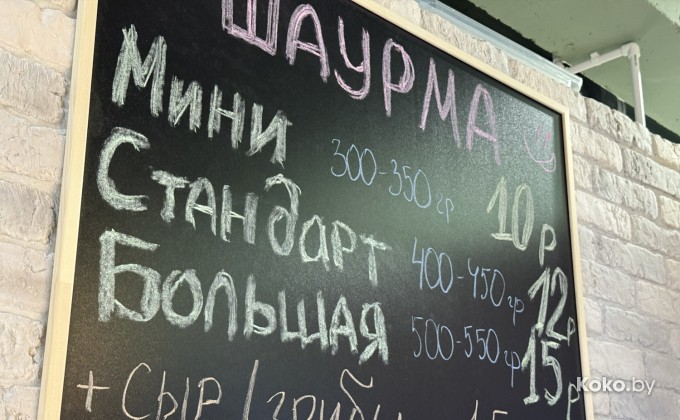 ШАУРМА
Мини 300-350 гр 10 р
Стандарт 400-450 гр 12 р
Большая 500-550 гр 15 р
+ сыр / грибы
Koko.by